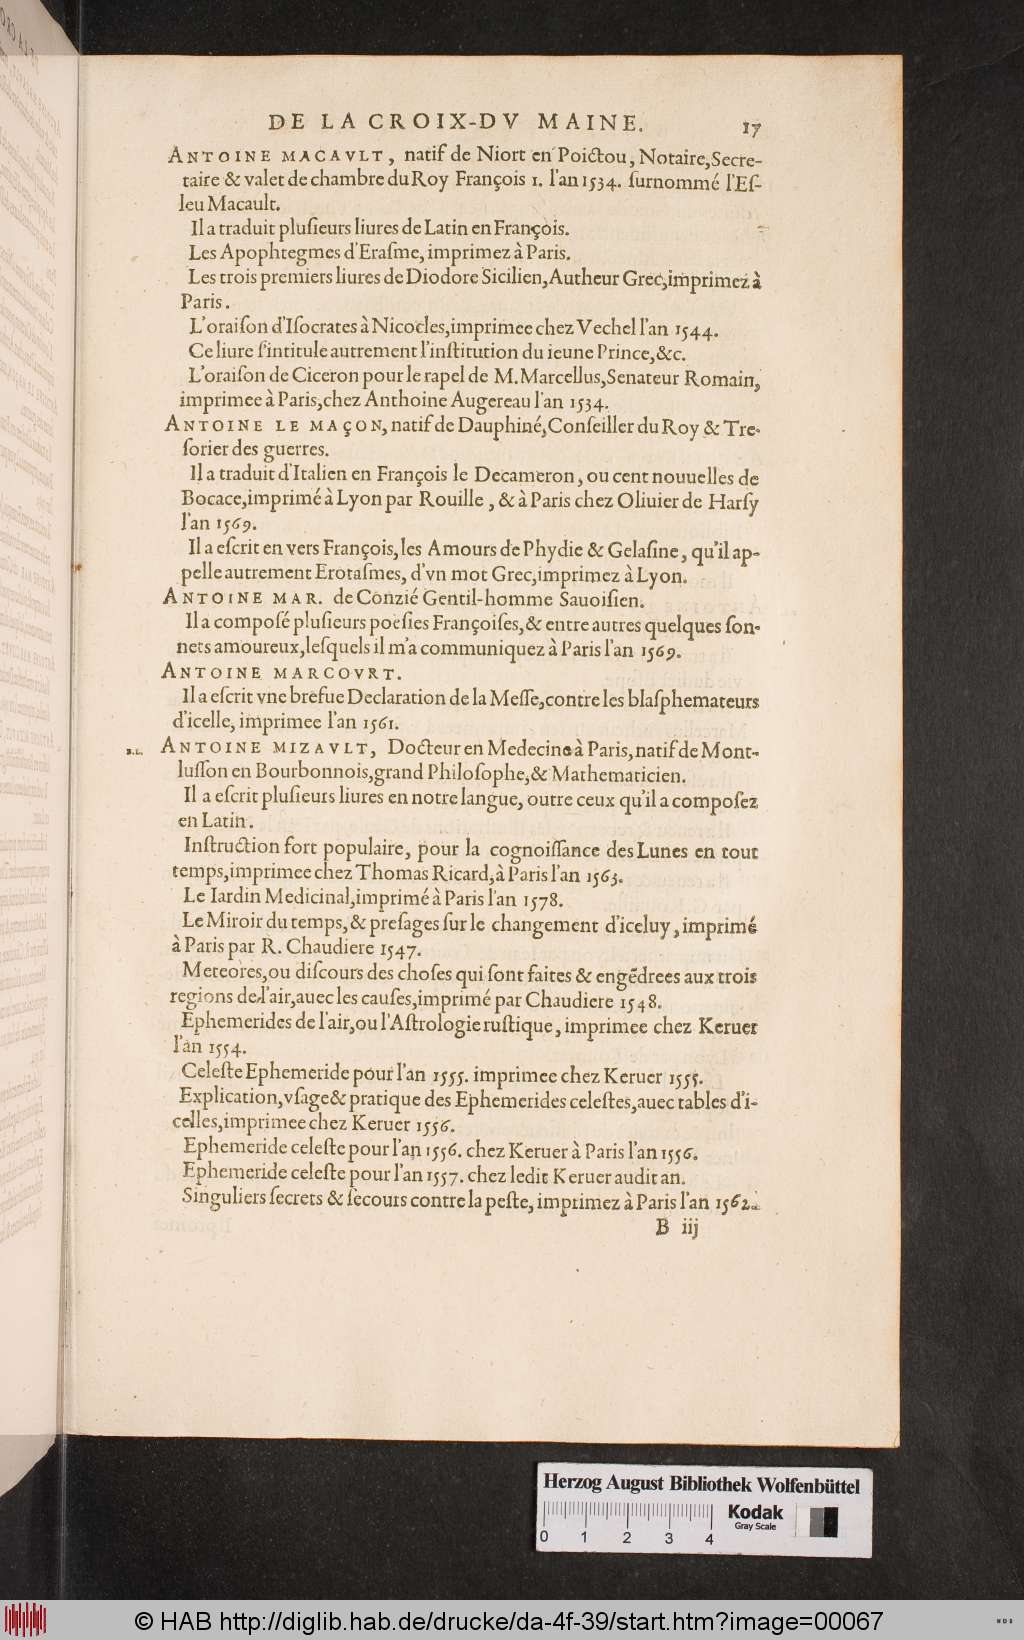 DE LA CROIX-DV MAINE. 17
ANTOINE MACAVLT, natif de Niort en Poictou, Notaire, Secre-
taire & valet de chambre du Roy François 1. l'an 1534. ſurnommé l'Eſ-
leu Macault.
Il a traduit pluſieurs liures de Latin en François.
Les Apophtegmes d'Eraſme, imprimez à Paris.
Les trois premiers liures de Diodore Sicilien, Autheur Grec, imprimez à
Paris.
L'oraiſon d'Iſocrates à Nicocles, imprimee chez Vechel l'an 1544.
Ce liure s'intitule autrement l'inſtitution du ieune Prince, &c.
L'oraiſon de Ciceron pour le rapel de M. Marcellus, Senateur Romain,
imprimee à Paris, chez Anthoine Augereau l'an 1534.
ANTOINE LE MAÇON, natif de Dauphiné, Conſeiller du Roy & Tre-
ſorier des guerres.
Il a traduit d'Italien en François le Decameron, ou cent nouuelles de
Bocace, imprimé à Lyon par Rouille, & à Paris chez Oliuier de Harſy
l'an 1569.
Il a eſcrit en vers François, les Amours de Phydie & Gelaſine, qu'il ap-
pelle autrement Erotaſmes, d'vn mot Grec, imprimez à Lyon.
ANTOINE MAR. de Conzié Gentil-homme Sauoiſien.
Il a compoſé pluſieurs poëſies Françoiſes, & entre autres quelques ſon-
nets amoureux, leſquels il m'a communiquez à Paris l'an 1569.
ANTOINE MARCOVRT.
Il a eſcrit vne brefue Declaration de la Meſſe, contre les blaſphemateurs
d'icelle, imprimee l'an 1561.
B.L. ANTOINE MIZAVLT, Docteur en Medecine à Paris, natif de Mont-
luſſon en Bourbonnois, grand Philoſophe, & Mathematicien.
Il a eſcrit pluſieurs liures en notre langue, outre ceux qu'il a compoſez
en Latin.
Inſtruction fort populaire, pour la cognoiſſance des Lunes en tout
temps, imprimee chez Thomas Ricard, à Paris l'an 1563.
Le Iardin Medicinal, imprimé à Paris l'an 1578.
Le Miroir du temps, & preſages ſur le changement d'iceluy, imprimé
à Paris par R. Chaudiere 1547.
Meteores, ou diſcours des choſes qui ſont faites & engẽdrees aux trois
regions de l'air, auec les cauſes, imprimé par Chaudiere 1548.
Ephemerides de l'air, ou l'Aſtrologie ruſtique, imprimee chez Keruer
l'an 1554.
Celeſte Ephemeride pour l'an 1555. imprimee chez Keruer 1555.
Explication, vſage & pratique des Ephemerides celeſtes, auec tables d'i-
celles, imprimee chez Keruer 1556.
Ephemeride celeſte pour l'an 1556. chez Keruer à Paris l'an 1556.
Ephemeride celeſte pour l'an 1557. chez ledit Keruer audit an.
Singuliers ſecrets & ſecours contre la peſte, imprimez à Paris l'an 1562.
B iij
Herzog August Bibliothek Wolfenbüttel
Kodak
Gray Scale
0 1 2 3 4
© HAB http://diglib.hab.de/drucke/da-4f-39/start.htm?image=00067